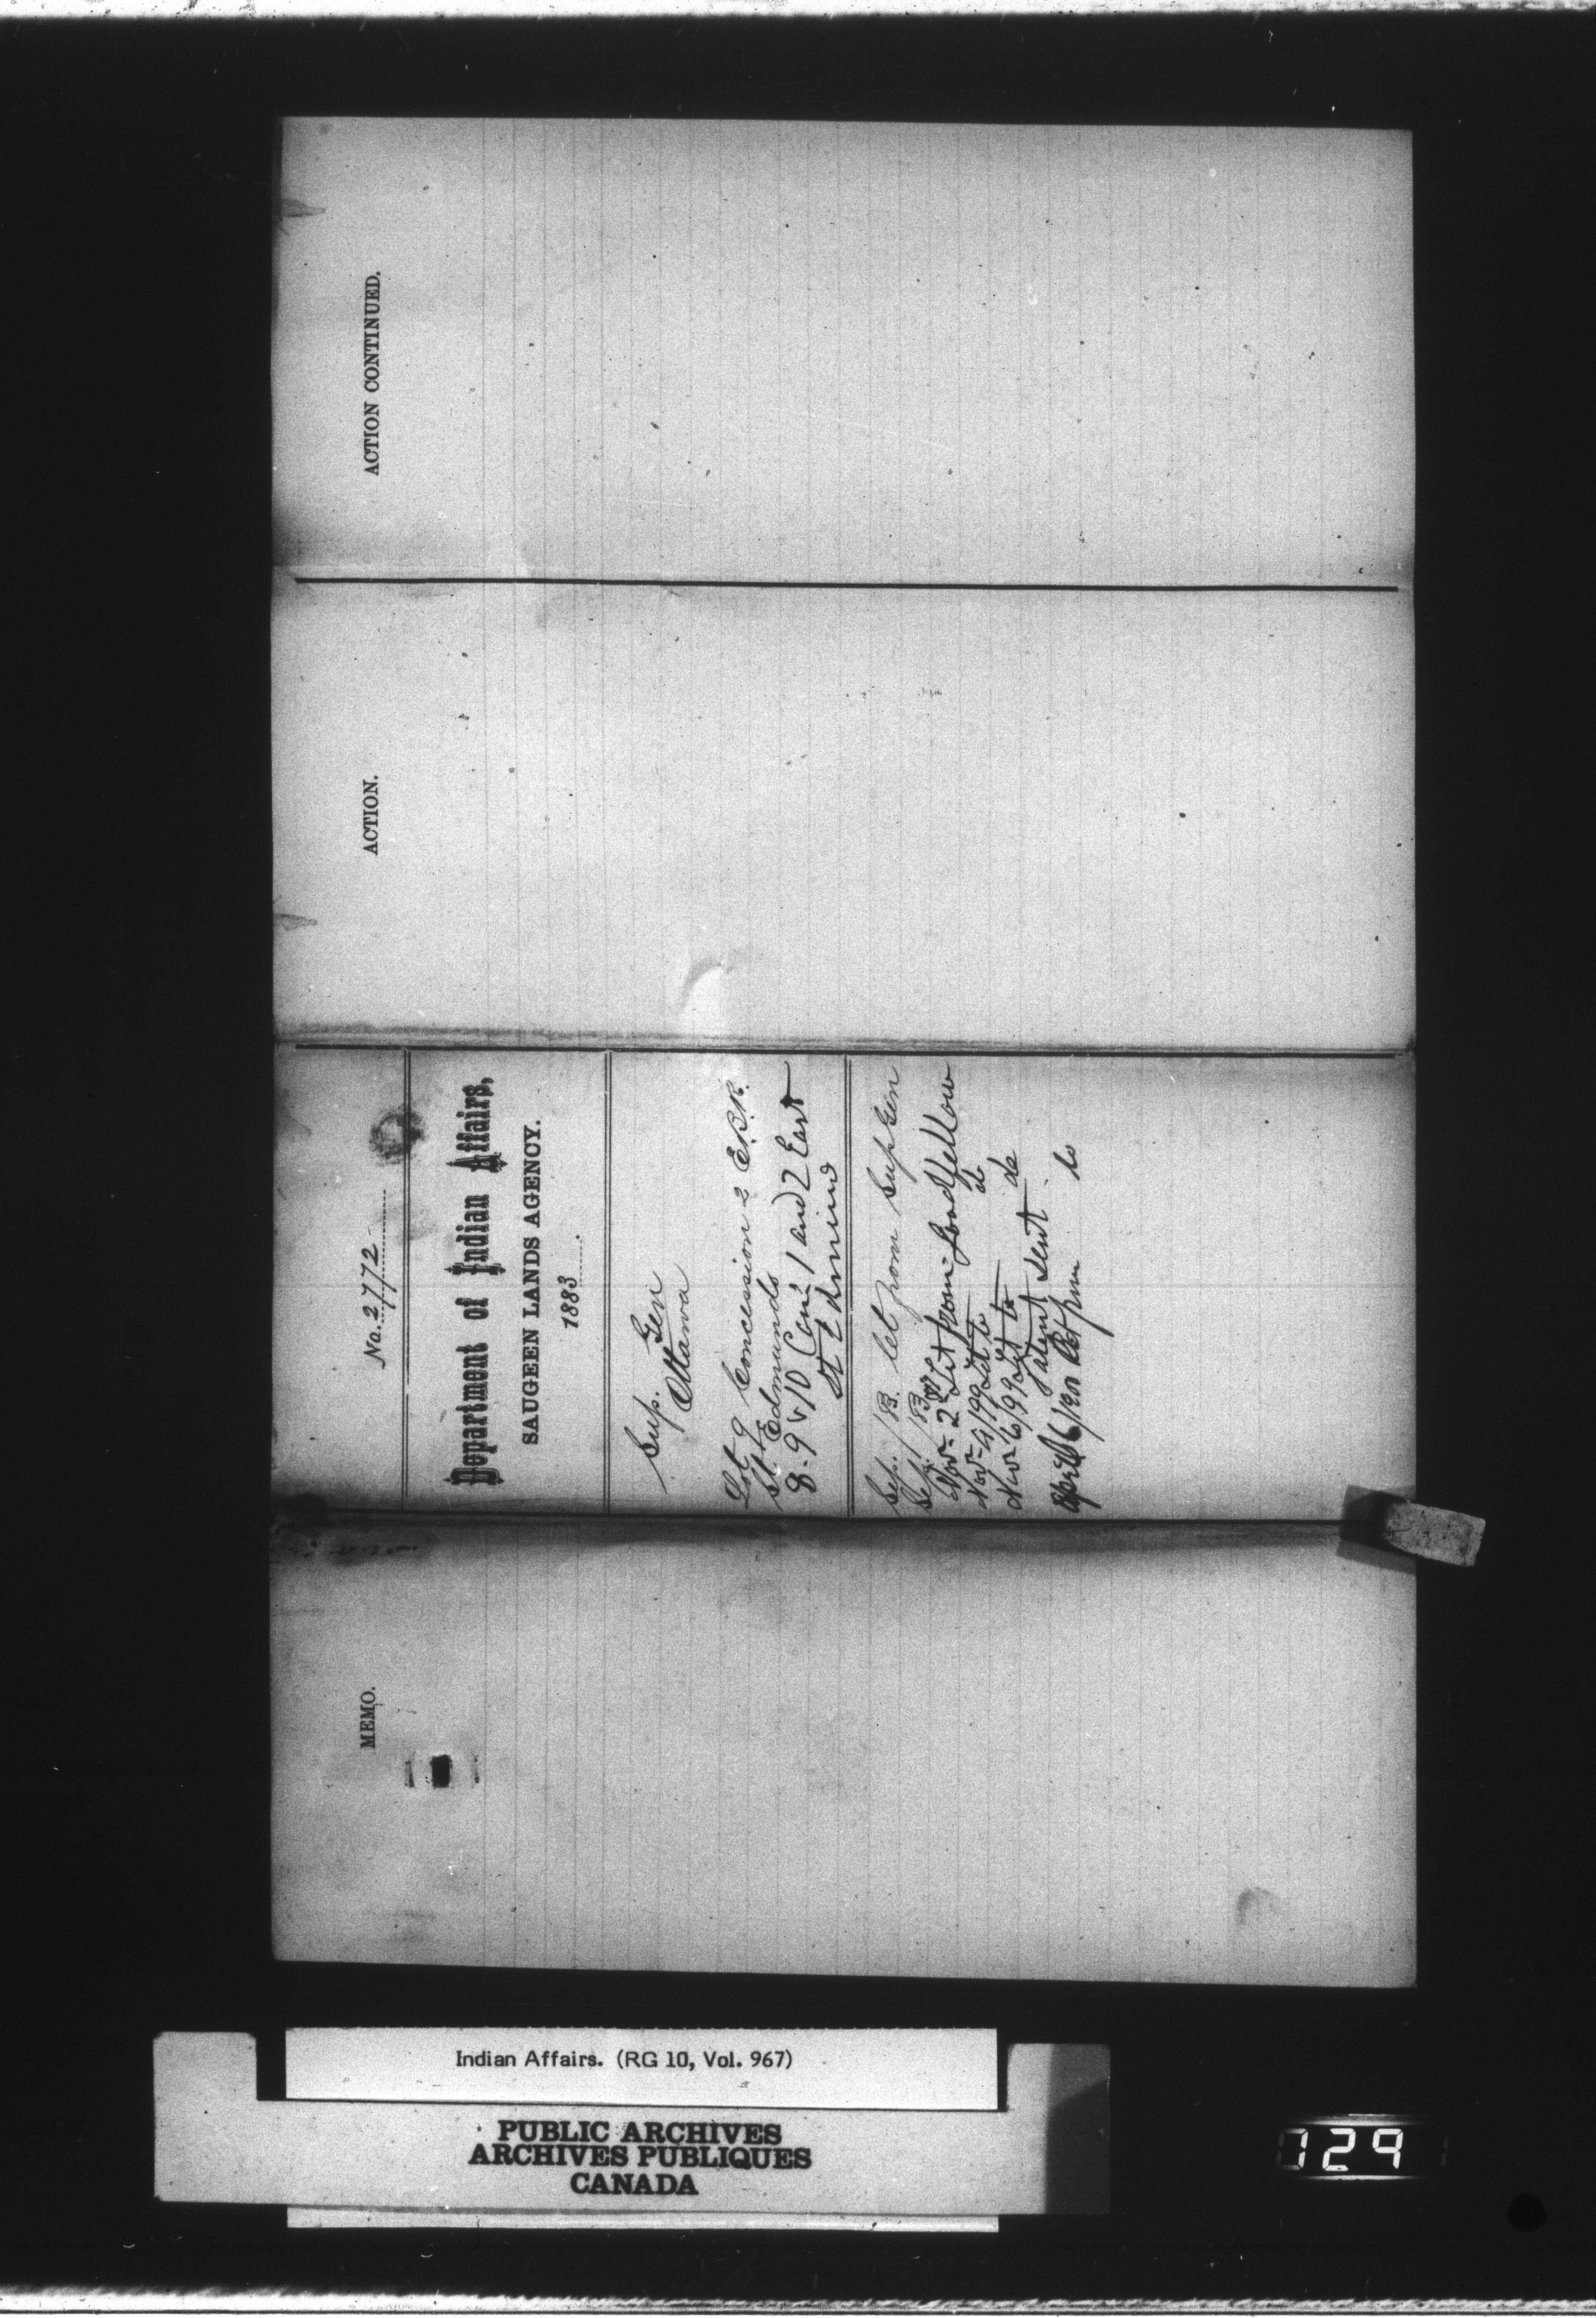 ACTION CONTINUED.
ACTION.
No. 2772
Department of Indian Affairs,
SAUGEEN LANDS AGENCY.
1883
Sup. Gen
Ottawa
Lot 9 Concession 2 E.B.R.
St. Edmunds
8-9 & 10 Con. 1 and 2 East
St Edmund
Sep. 13. Let from Sup Gen
Sep. 13
Nov 2 Let from Goodfellow
Nov 4/99 Let to do
Nov 6/99 Let to do
Patent sent
April 6/1900 from do
MEMO.
Indian Affairs. (RG 10, Vol. 967)
PUBLIC ARCHIVES
ARCHIVES PUBLIQUES
CANADA
729